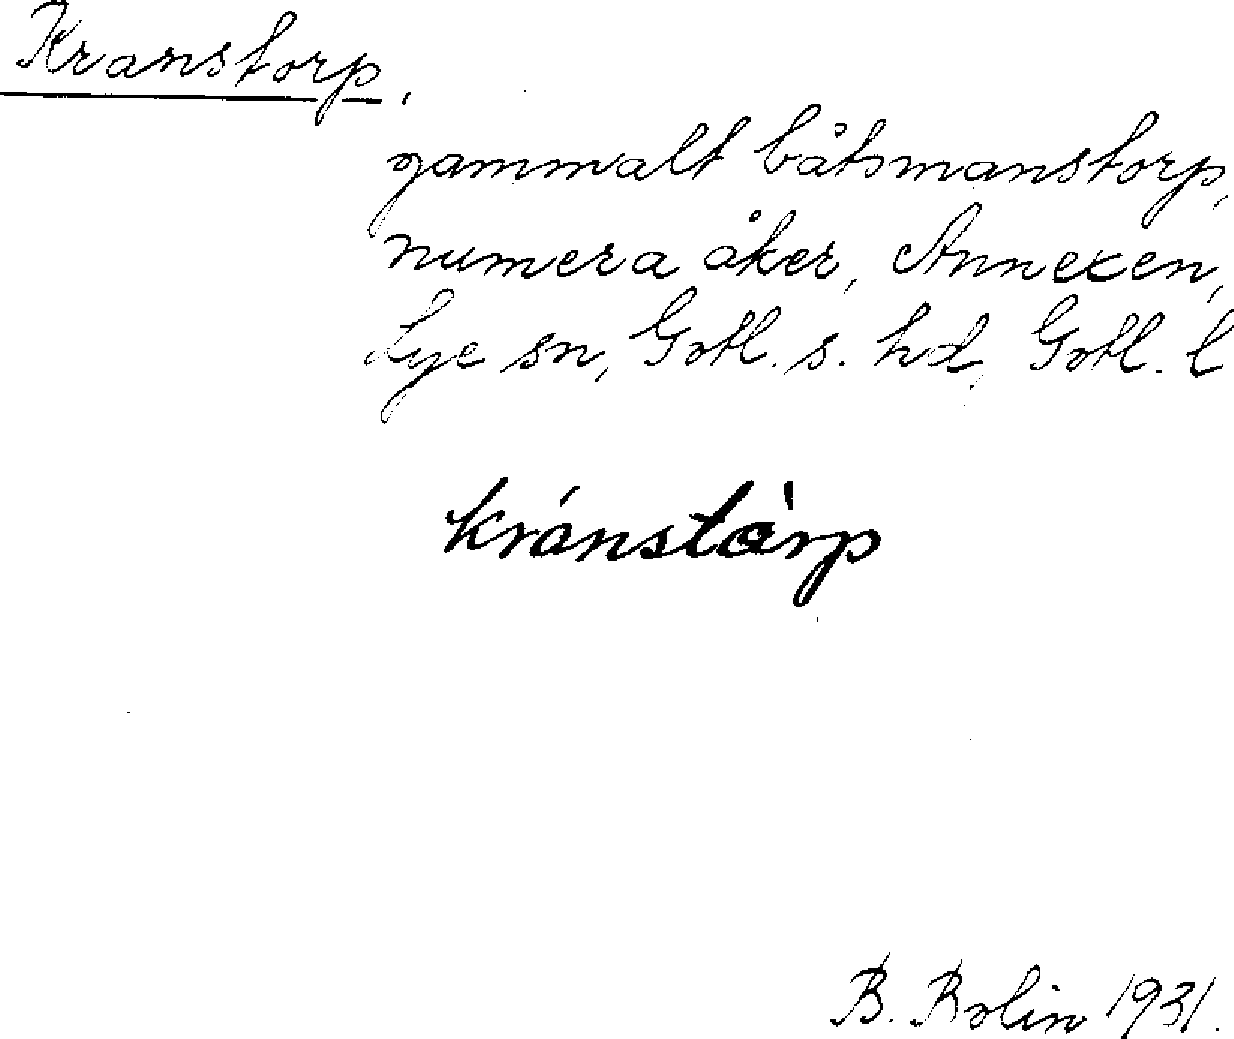 Kranstorp,
gammalt båtsmanstorp,
numera åker, Annexen,
Lye sn, Gotl. s. hd, Gotl. l
kránstàrp
B. Bolin 1931.